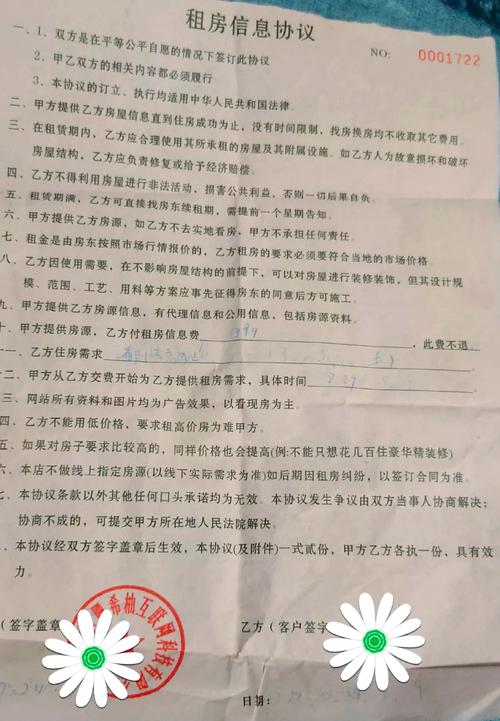 租房信息协议
NO: 0001722
一、1、双方是在平等公平自愿的情况下签订此协议
2、甲乙双方的相关内容都必须履行
3、本协议的订立、执行均适用中华人民共和国法律。
二、甲方提供乙方房屋信息直到住房成功为止，没有时间限制，找房换房均不收取其它费用。
三、在租赁期内，乙方应合理使用其所承租的房屋及其附属设施。如乙方人为故意损坏和破坏
房屋结构，乙方应负责修复或给予经济赔偿。
四、乙方不得利用房屋进行非法活动，损害公共利益，否则一切后果自负。
五、租赁期满，乙方可直接找房东续租期，需提前一个星期告知。
六、甲方提供乙方房源，如乙方不去实地看房，甲方不承担任何责任。
七、租金是由房东按照市场行情报价的，乙方租房的要求必须要符合当地的市场价格。
八、乙方因使用需要，在不影响房屋结构的前提下，可以对房屋进行装修装饰，但其设计规
模、范围、工艺、用料等方案应事先征得房东的同意后方可施工。
九、甲方提供乙方房源信息，有代理信息和公用信息，包括房源资料。
十、甲方提供房源，乙方付租房信息费 ，此费不退。
一、乙方住房需求
十二、甲方从乙方交费开始为乙方提供租房需求，具体时间
三、网站所有资料和图片均为广告效果，以看现房为主。
四、乙方不能用低价格，要求租高价房为难甲方。
五、如果对房子要求比较高的，同样价格也会提高(例:不能只想花几百住豪华精装修)
六、本店不做线上指定房源(以线下实际需求为准)如后期因租房纠纷，以签订合同为准。
七、本协议条款以外其他任何口头承诺均为无效。本协议发生争议由双方当事人协商解决；
协商不成的，可提交甲方所在地人民法院解决。
、本协议经双方签字盖章后生效，本协议(及附件)一式贰份，甲方乙方各执一份，具有效
力。
（签字盖章
乙方（客户签字
希柚互联网科技有限
日期：